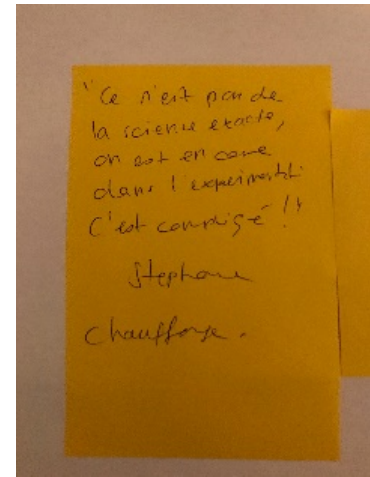 "Ce n'est pas de
la science exacte,
on est encore
dans l'expérimentat.
C'est compliqué !"
Stephane
Chauffage.